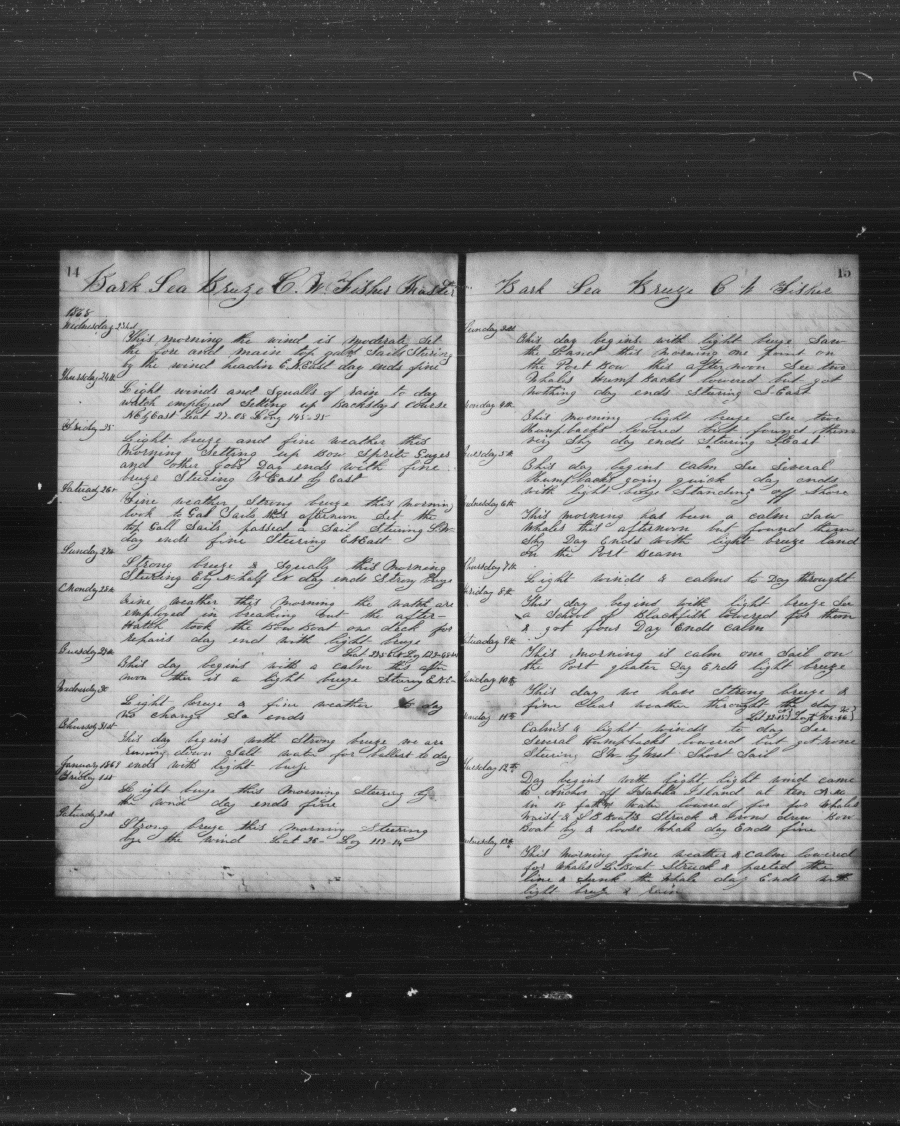 14
Bark Sea Breze C. W. Fisher Master
1868
Wednesday 23rd
This morning the wind is moderate Set
the fore and main top gant Sails Stering
by the wind headin E.N East day ends fine
Thursday 24th
Light winds and Squalls of rain to day
watch employed Setting up Backstays course
N E by East Lat 27-08 Long 145-25
Friday 25
Light breze and fine weather this
Morning Setting up Bow Sprit
and other jobs Day ends with fine
breze Steering N East by East
Saturd 26th
Fine weather Strong breze this morning
took to Gal Sails this afternoon Set the
top Gall Sails passed a Sail Stering S.W.
day ends fine Steering E N East
Sunday 27th
Strong breze & Squally this Morning
Steering E by N half N day ends Strong breze
Monday 28th
Fine weather this Morning the watch are
employed in breaking out the after-
Hatch took the Bow Boat one deck for
repairs day end with light breze
Tuesday 29th
This day begins with a calm this after
noon ther is a light breze Stering E.N.E
Wednesday 30
Light breze & fine weather to day
no change So ends
Thursday 31st
This day begins with Strong breze we are
runing down Salt water for ballast to day
ends with light breze
January 1869
Friday 1st
Light breze this Morning Steering by
the wind day ends fine
Saturday 2nd
Strong breze this morning Steering
bye the wind Lat 26- Log 113-14
15
Bark Sea Breze C W Fisher
Sunday 3rd
This day begins with light breze Saw
the Land this morning one point on
the Port Bow this afternoon See two
Whales Hump Backs lowered but got
nothing day ends Stering S-East
Monday 4th
This Morning light breze See two
Humpbacks lowered but found them
very Shy day ends Stering S East
Tuesday 5th
This day begins calm See Several
Humpbacks going quick day ends
with light breze Standing off Shore
Wednesday 6th
This morning has been a calm Saw
Whales this afternoon but found them
Shy Day Ends with light breze land
on the Port Beam
Thursday 7th
Light winds & calms to Day throught
Friday 8th
This day begins with light breze See
a School of Blackfish lowered for them
& got four Day Ends calm
Saturday 9th
This morning is calm one Sail on
the Port quater Day Ends light breze
Sunday 10th
This day we have Strong breze &
fine Clear weather throught the day
Monday 11th
Calms & light winds to day See
Several Humpbacks lowered but got none
Steering SW by West Short Sail
Tuesday 12th
Day begins with light, light wind came
to Anchor off Isabella Island at ten A.M
in 18 fathm Water lowered for for whales
Waist & L B Boats Struck & Irons drew Bow
Boat by & loose whale day Ends fine
Wednesday 13th
This Morning fine weather & calm lowered
for Whales L. Boat Struck & parted the
line & Sunk the Whale day Ends with
light breze & rain